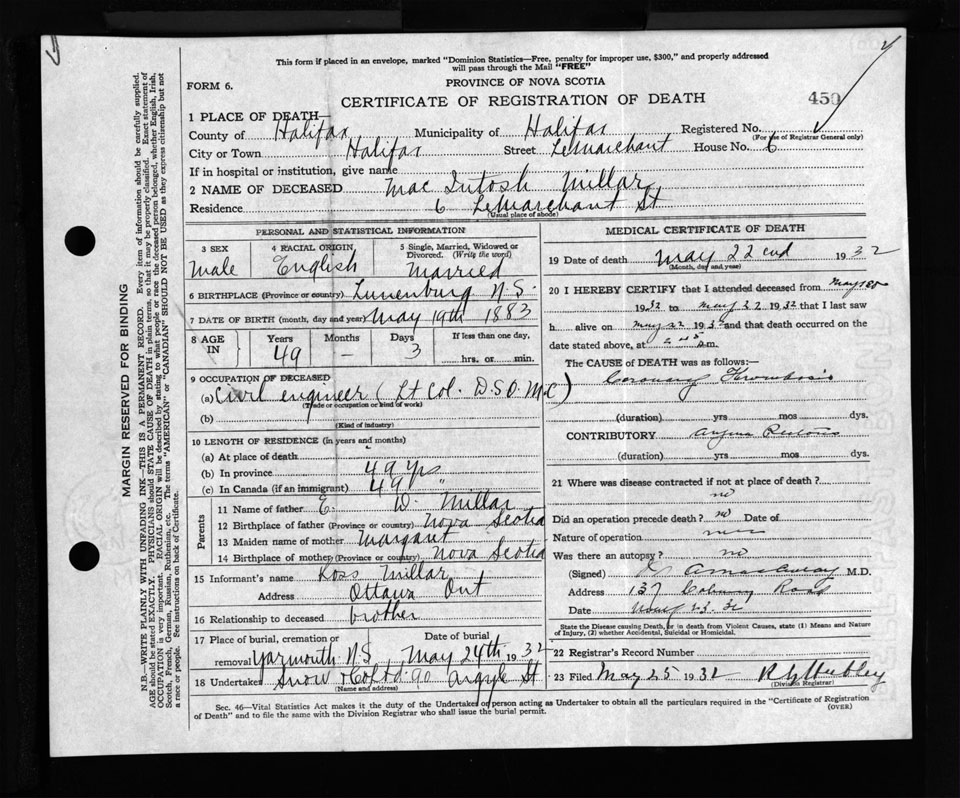 This form if placed in an envelope, marked "Dominion Statistics—Free, penalty for improper use, $300," and properly addressed
will pass through the Mail "FREE"
FORM 6.
PROVINCE OF NOVA SCOTIA
CERTIFICATE OF REGISTRATION OF DEATH
450
1 PLACE OF DEATH
County of Halifax Municipality of Halifax Registered No.
(For use of Registrar General only)
City or Town Halifax Street LeMarchant House No. 6
If in hospital or institution, give name
2 NAME OF DECEASED Mac Intosh Millar
Residence 6 LeMarchant St
(Usual place of abode)
PERSONAL AND STATISTICAL INFORMATION
3 SEX
Male
4 RACIAL ORIGIN
English
5 Single, Married, Widowed or
Divorced. (Write the word)
Married
6 BIRTHPLACE (Province or country) Lunenburg N.S.
7 DATE OF BIRTH (month, day and year) May 19th 1883
8 AGE IN
Years Months Days If less than one day,
49 – 3 hrs. or min.
9 OCCUPATION OF DECEASED
(a) Civil engineer (Lt Col. D.S.O. M.C)
(Trade or occupation or kind of work)
(b)
(Kind of industry)
10 LENGTH OF RESIDENCE (in years and months)
(a) At place of death
(b) In province 49 yrs
(c) In Canada (if an immigrant) 49 "
Parents
11 Name of father E. W. Millar
12 Birthplace of father (Province or country) Nova Scotia
13 Maiden name of mother Margaret
14 Birthplace of mother (Province or country) Nova Scotia
15 Informant's name Ross Millar
Address Ottawa Ont
16 Relationship to deceased brother
17 Place of burial, cremation or Date of burial
removal Yarmouth N.S. May 24th 1932
18 Undertaker Snow & Co Ltd 90 Argyle St
(Name and address)
MEDICAL CERTIFICATE OF DEATH
19 Date of death May 22 1932
(Month, day and year)
20 I HEREBY CERTIFY that I attended deceased from May
1932 to May 22 1932 that I last saw
h alive on May 22 1932 and that death occurred on the
date stated above, at m.
The CAUSE of DEATH was as follows:—
Coronary Thrombosis
(duration) yrs mos dys.
CONTRIBUTORY Angina Pectoris
(duration) yrs mos dys.
21 Where was disease contracted if not at place of death ?
no
Did an operation precede death ? no Date of
Nature of operation
Was there an autopsy ? no
(Signed) M.D.
Address 137 Coburg Road
Date May 23. 32
State the Disease causing Death, or in death from Violent Causes, state (1) Means and Nature
of Injury, (2) whether Accidental, Suicidal or Homicidal.
22 Registrar's Record Number
23 Filed May 25 1932
(Division Registrar)
Sec. 46—Vital Statistics Act makes it the duty of the Undertaker or person acting as Undertaker to obtain all the particulars required in the "Certificate of Registration
of Death" and to file the same with the Division Registrar who shall issue the burial permit. (OVER)
MARGIN RESERVED FOR BINDING
N.B.—WRITE PLAINLY WITH UNFADING INK—THIS IS A PERMANENT RECORD. Every item of information should be carefully supplied.
AGE should be stated EXACTLY. PHYSICIANS should STATE CAUSE OF DEATH in plain terms, so that it may be properly classified. Exact statement of
OCCUPATION is very important. RACIAL ORIGIN will be described by stating to what people or race the deceased person belonged, whether English, Irish,
Scotch, French, German, Russian, Ruthenian, etc. The terms "AMERICAN" or "CANADIAN" SHOULD NOT BE USED as they express citizenship but not
a race or people. See instructions on back of Certificate.